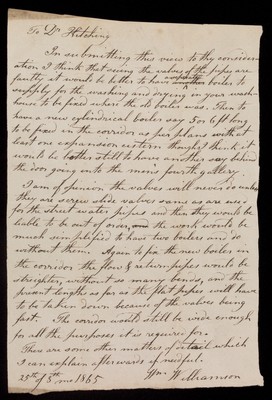 To Dr Hitching
In submitting this view to thy consider-
ation I think that seeing the valves of the pipes are
faulty it would be better to have another boiler to
supply for the washing and drying in your wash-
house to be fixed where the old boiler was. Then to
have a new cylindrical boiler say 5 or 6 ft long
to be fixed in the corridor as per plans with at
least one expansion cistern though I think it
would be better still to have another say behind
the door going onto the mens fourth gallery.
I am of opinion the valves will never
they are screw slide valves same as are used
for the street water pipes and then they would be
liable to be out of order, and the work would be
much simplified to have two boilers and do
without them. Again to fix the new boiler in
the corridor the flow & return pipes would be
straighter, without so many bends, and the
present lengths as far as the flat pipes will have
to be taken down because of the valves being
fast. The corridor would still be wide enough
for all the purposes it is required for.
There are some other matters of detail which
I can explain afterwards if needful.
25th of 8th mo 1865 Wm Williamson